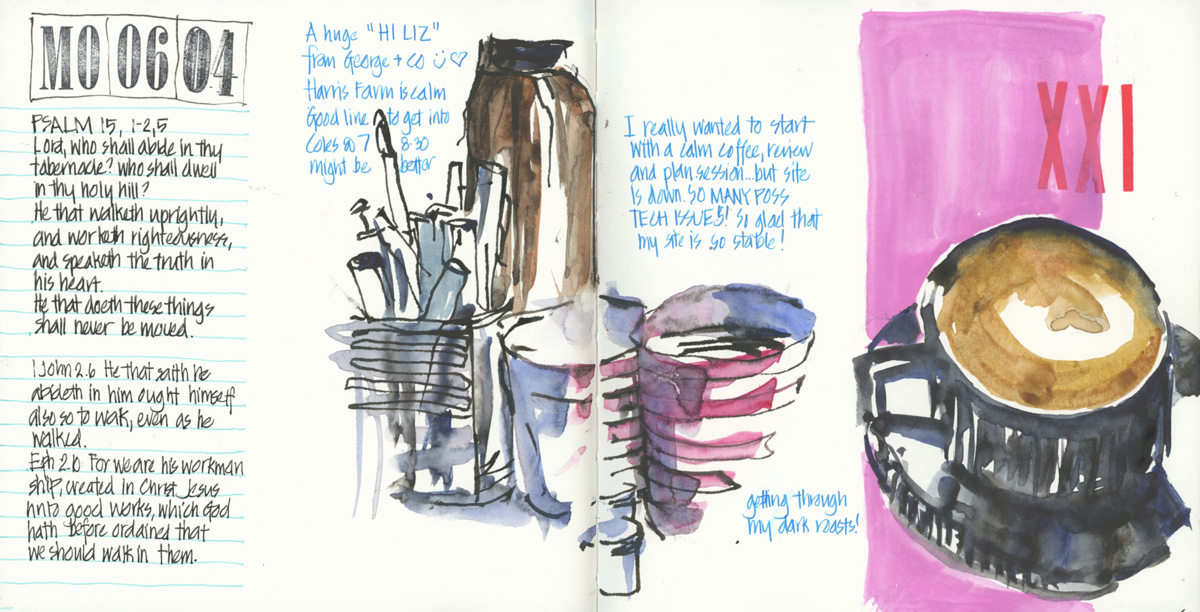 MO 06 04
PSALM 15, 1-2,5
Lord, who shall abide in thy
tabernacle? who shall dwell
in thy holy hill?
He that walketh uprightly,
and worketh righteousness,
and speaketh the truth in
his heart.
He that doeth these things
shall never be moved.
1 John 2.6 He that saith he
abideth in him ought himself
also so to walk, even as he
walked.
Eph 2.10 For we are his workman
ship, created in Christ Jesus
unto good works, which God
hath before ordained that
we should walk in them.
A huge "HI LIZ"
from George + co
Harris Farm is calm
Good line to get into
Coles so 7 8.30
might be better
I really wanted to start
with a calm coffee, review
and plan session...but site
is down. SO MANY FOSS
TECH ISSUES! So glad that
my site is so stable!
getting through
my dark roasts!
XXI